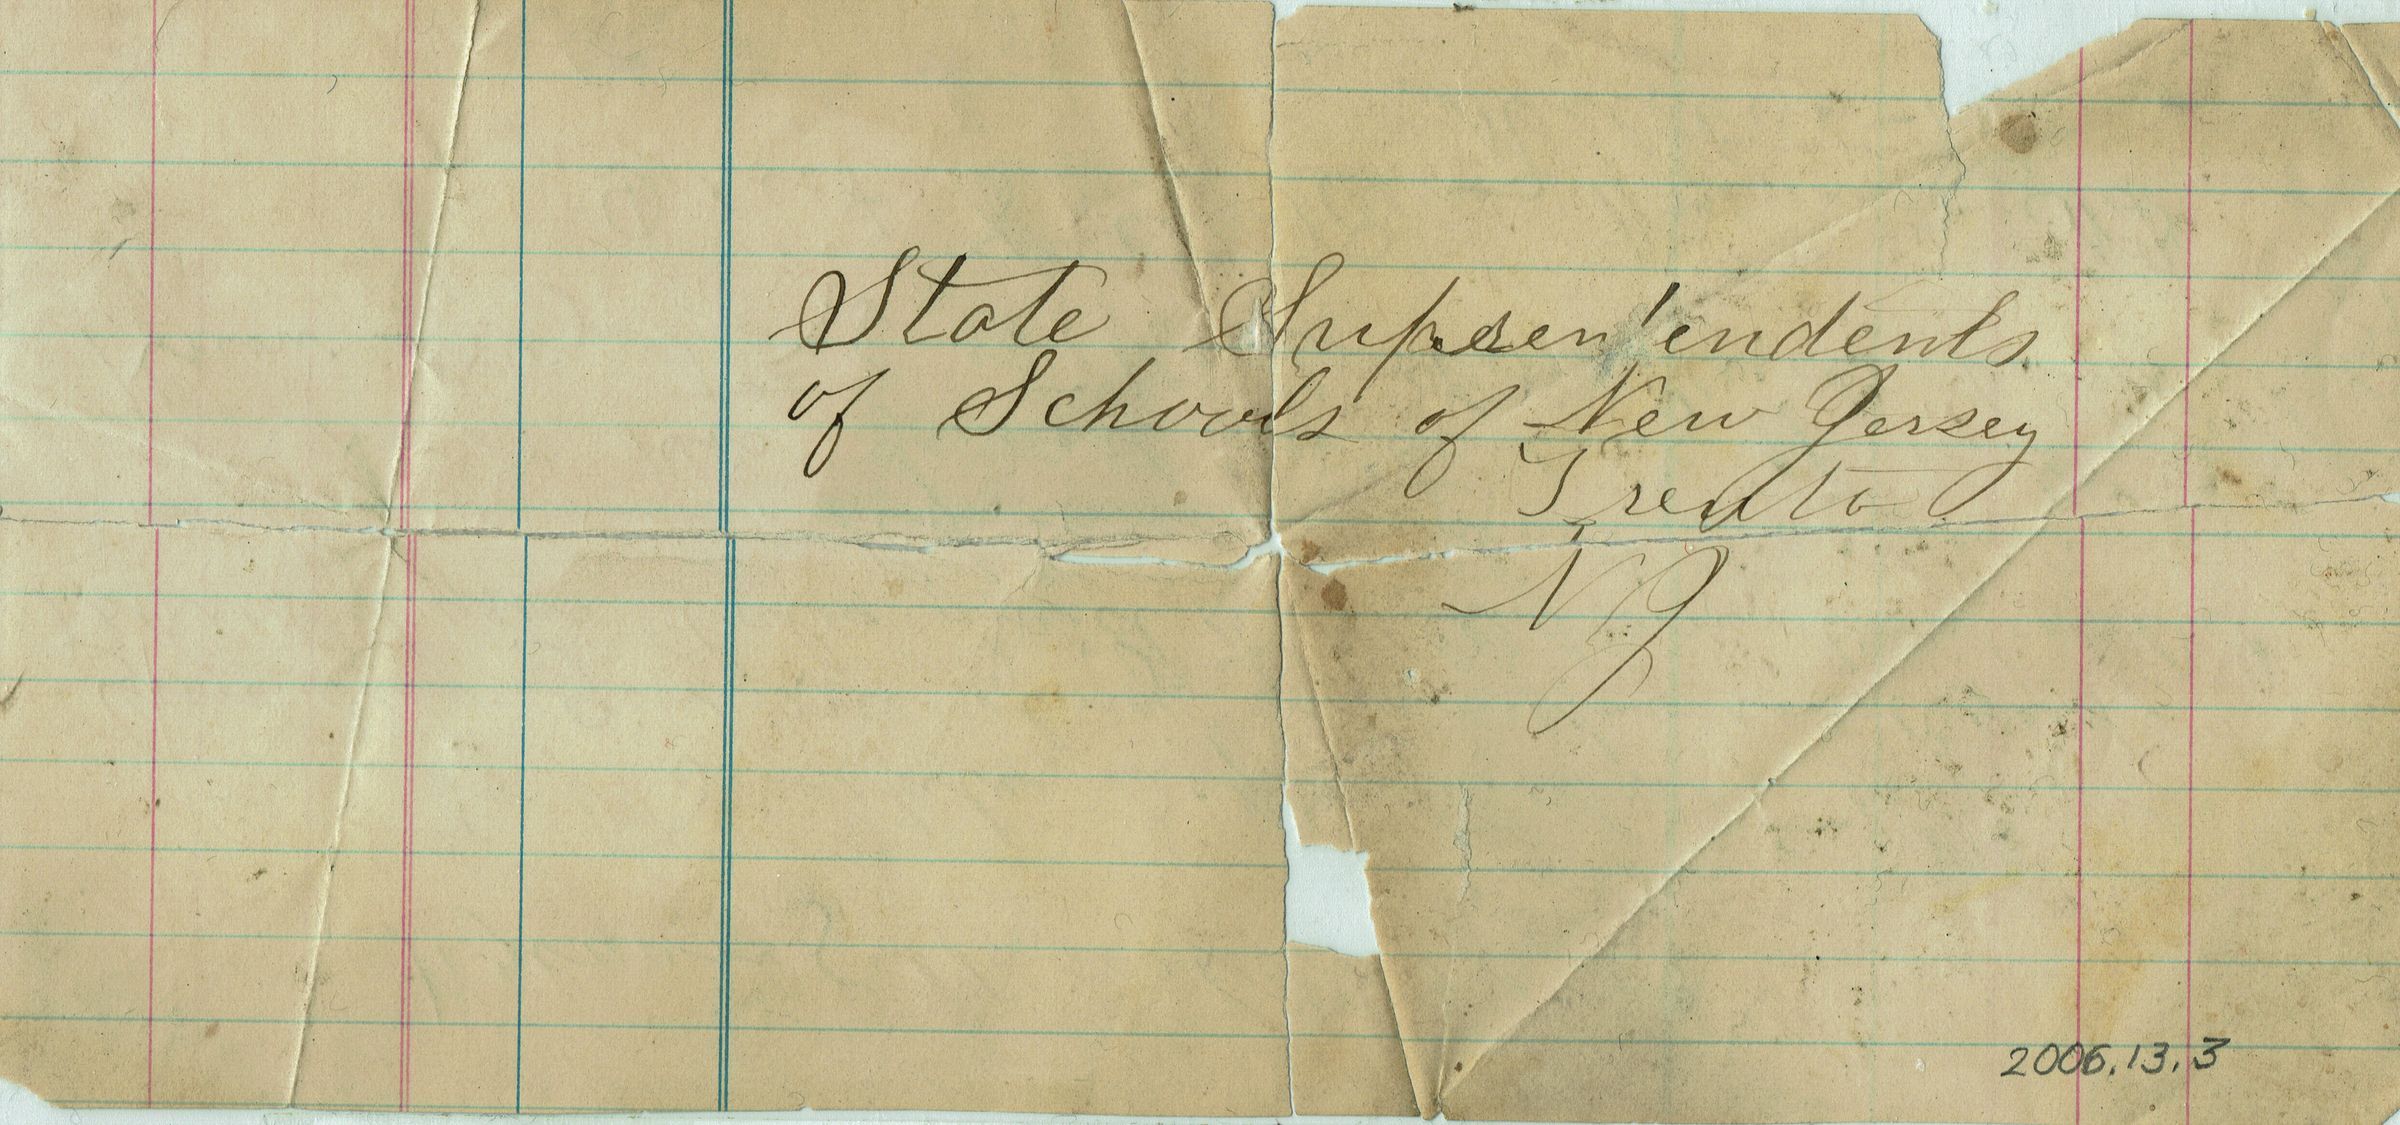 State Supersen'endents
of Schools of New Jersey
Trento
NJ
2006.13.3